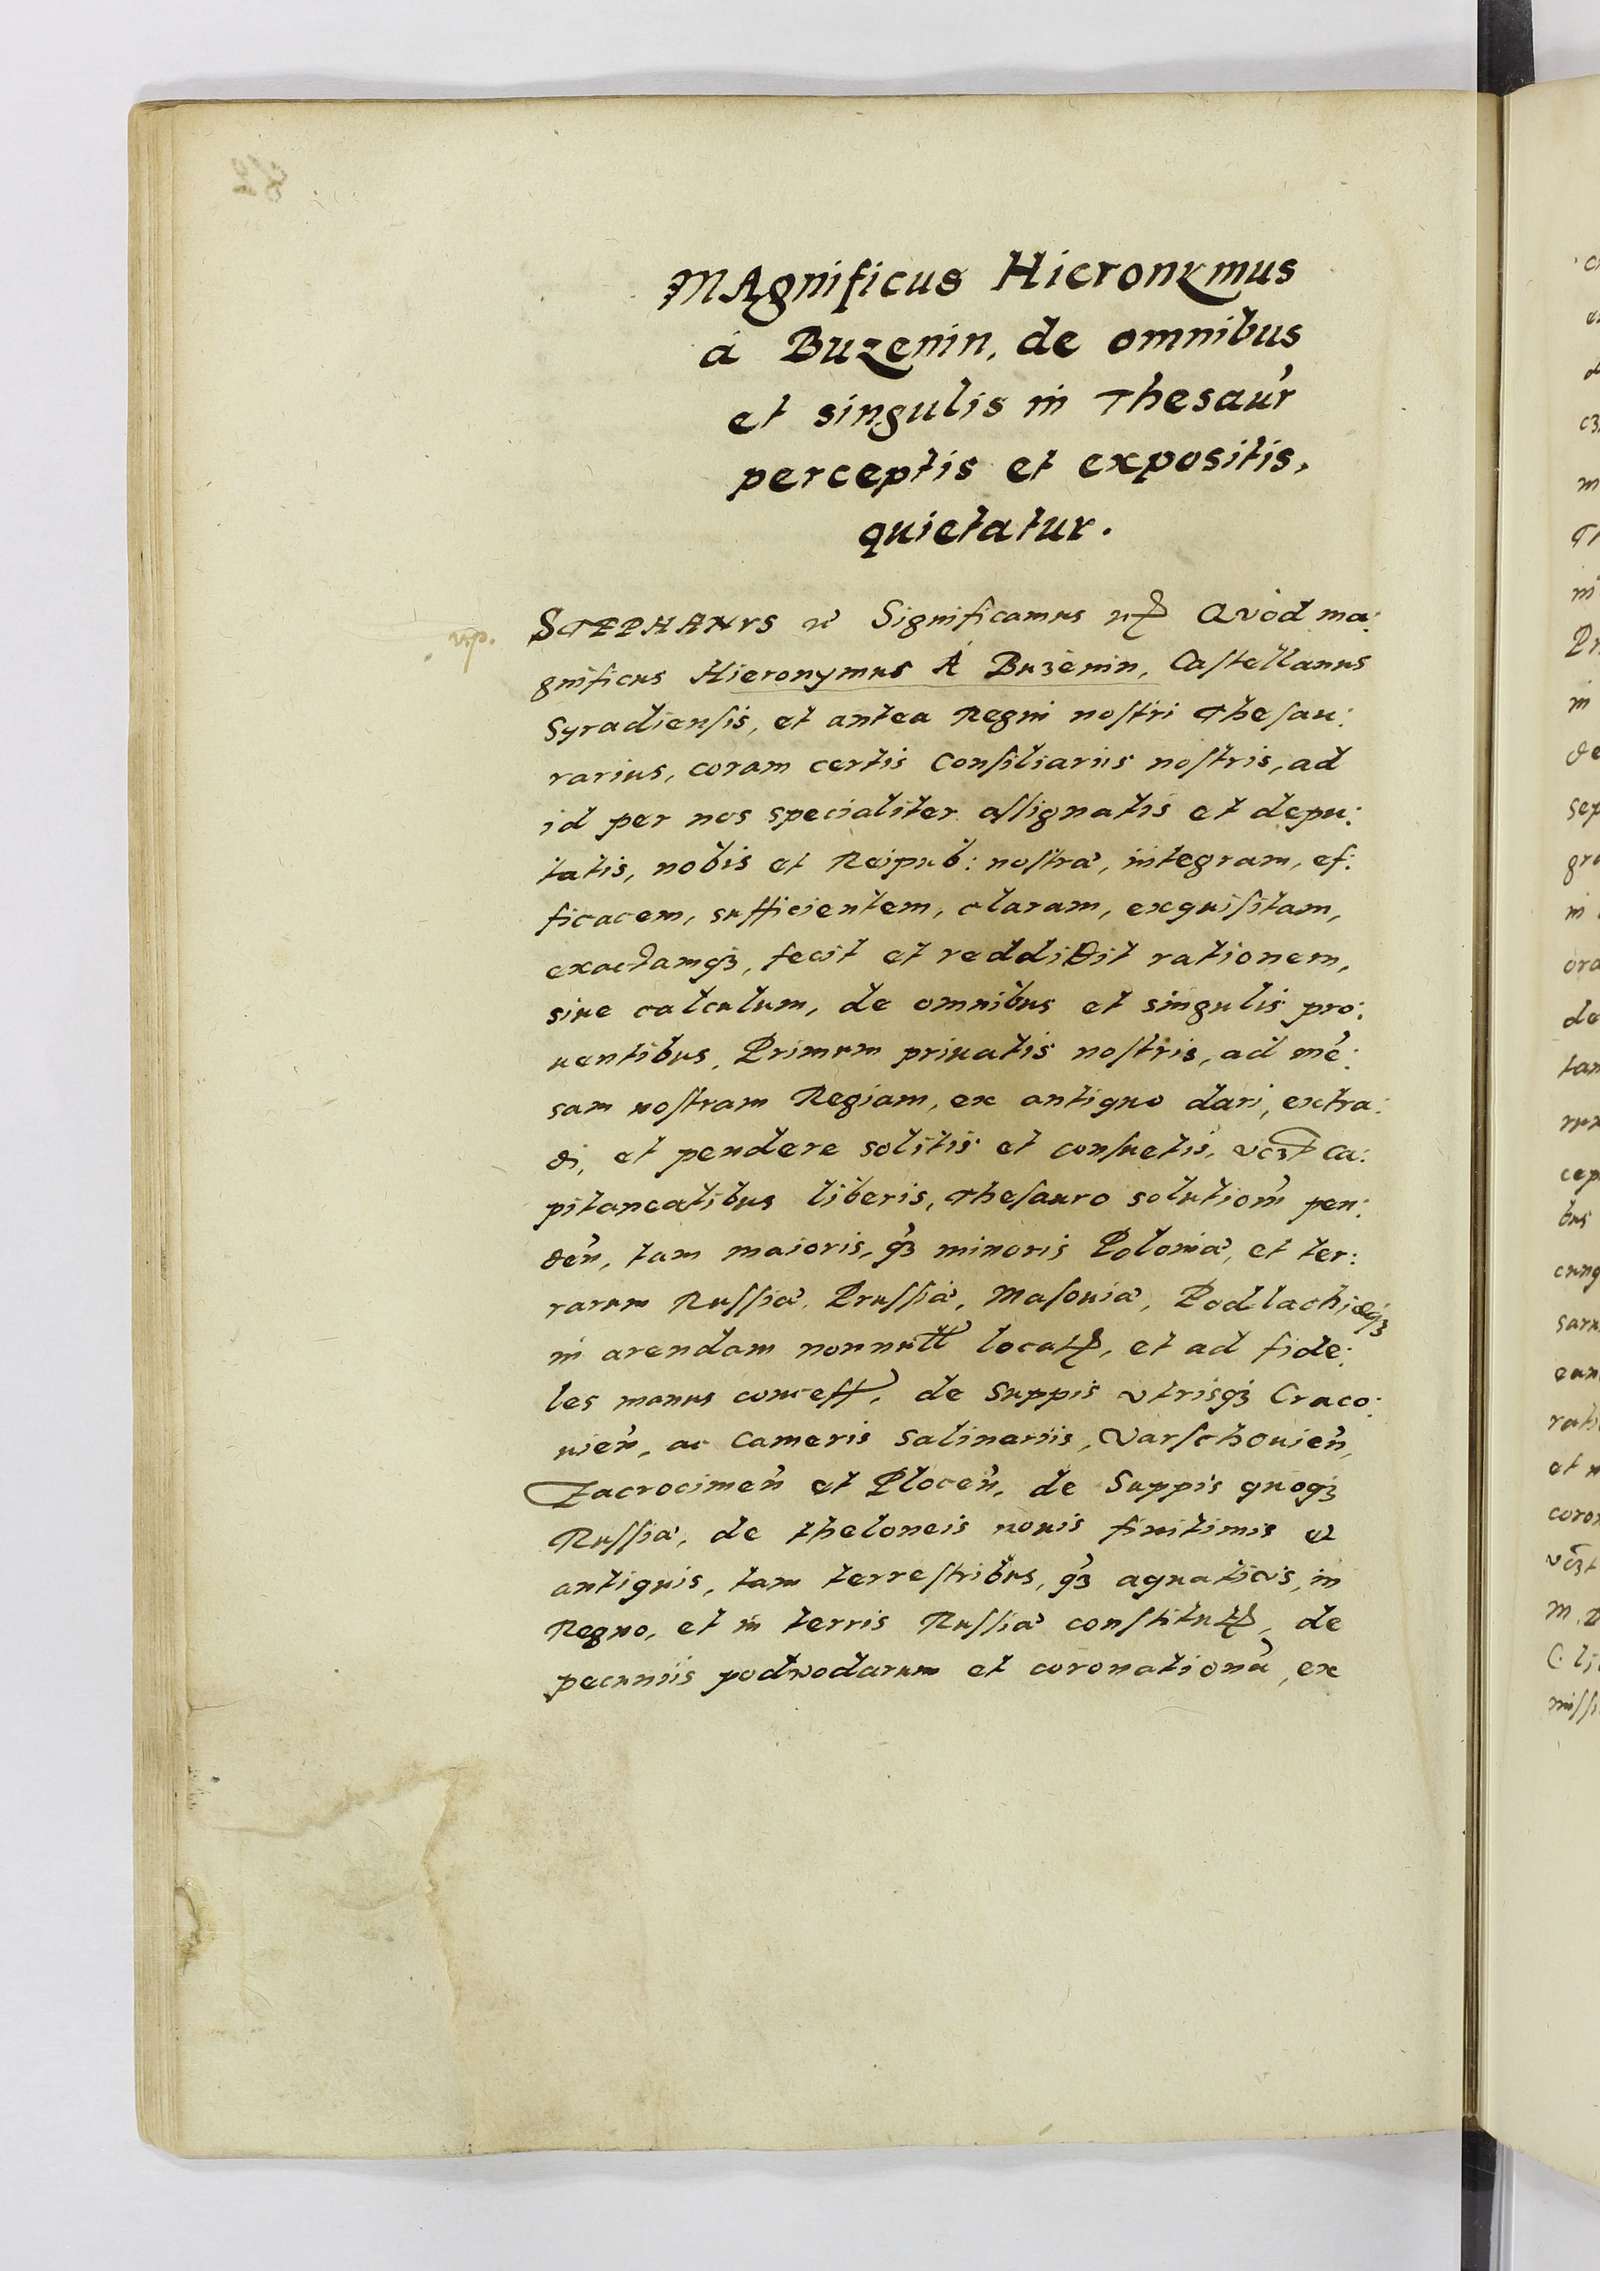 MAgnificus Hieronymus
á Buzenin, de omnibus
et singulis in Thesaur
perceptis et expositis,
quietatur.
STEPHANVS Significamus Qvod ma:
gnificus Hieronymus Á Buzenin, Castellanus
Syradiensis, et antea Regni nostri Thesau:
rarius, coram certis Consiliariis nostris, ad
id per nos specialiter assignatis et depu:
tatis, nobis et Reipub: nostræ, integram, ef:
ficacem, sufficientem, claram, exquisitam,
exactamq3, fecit et reddidit rationem,
siue calculum, de omnibus et singulis pro:
uentibus, Primum priuatis nostris, ad me:
sam nostram Regiam, ex antiquo dari, extra:
di, et pendere solitis et consuetis, vc3t Ca:
pitaneatibus liberis, Thesauro solution pen:
den, tam maioris, q3 minoris Poloniæ, et ter:
rarum Russiæ, Prussiæ, Masouiæ, Podlachiæq3
in arendam nonnull locat, et ad fide:
les manus concess, de Suppis vtrisq3 Craco:
uien, ac Cameris Salinariis, Varschouien,
Zacrocimen et Plocen, de Suppis quoq3
Russiæ, de theloneis nouis finitimis et
antiquis, tam terrestribus, q3 aquaticis, in
Regno, et in terris Russiæ constitut, de
pecuniis podwodarum et coronationũ, ex